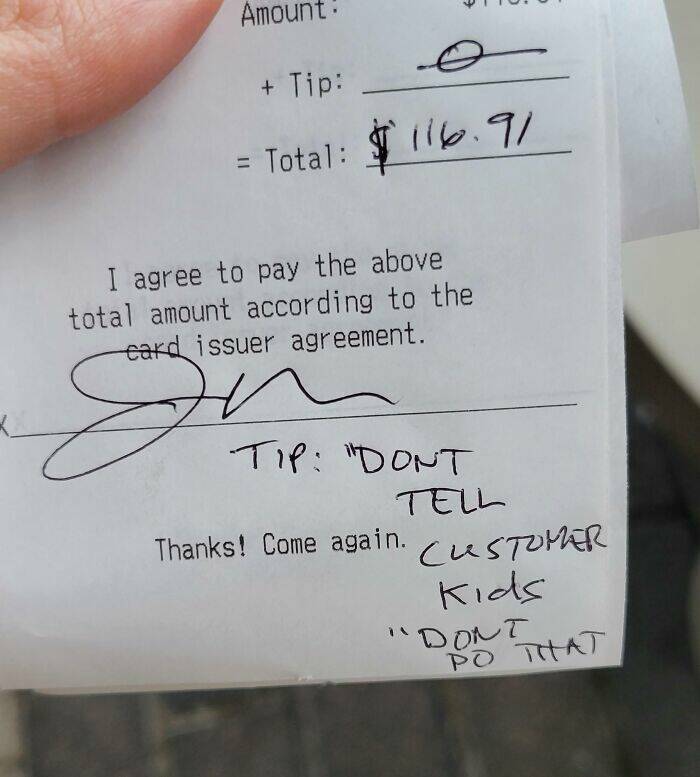 Amount:
+ Tip: 0
= Total: $ 116.91
I agree to pay the above
total amount according to the
card issuer agreement.
X
TIP: "DONT
TELL
Thanks! Come again. CUSTOMER
Kids
"DONT
DO THAT